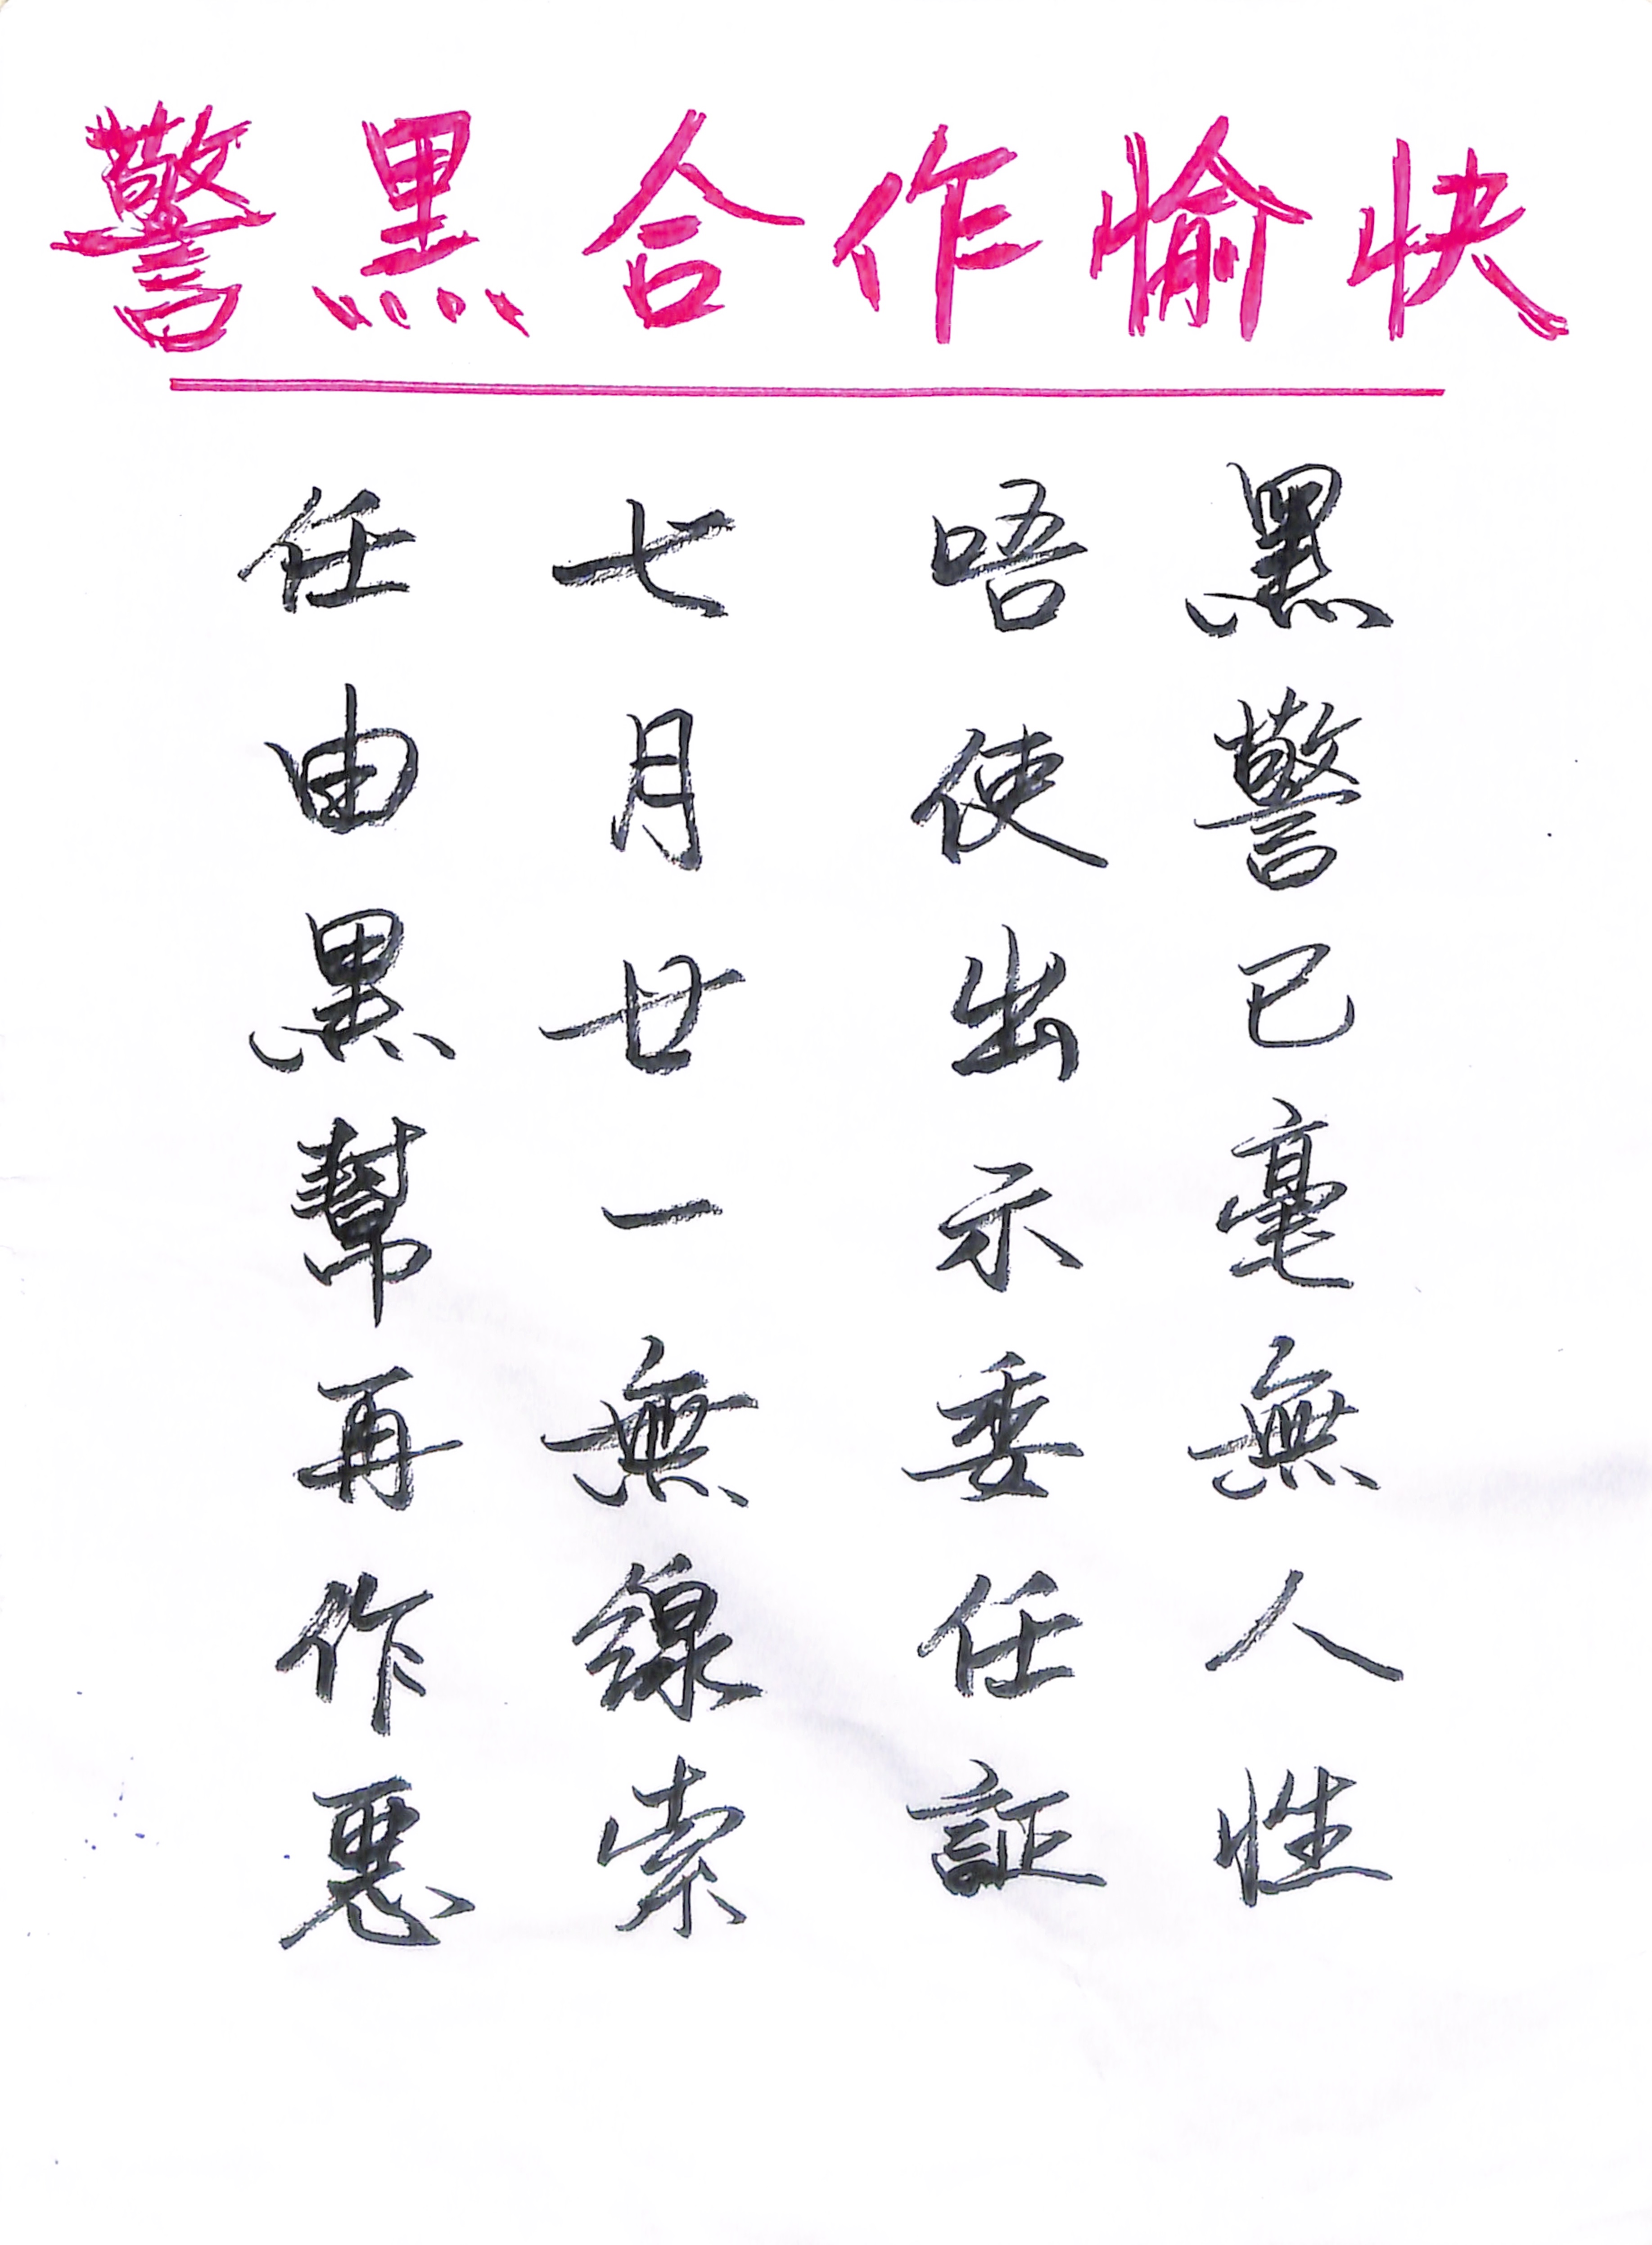 警黑合作愉快
黑警已毫無人性
唔使出示委任証
七月廿一無線索
任由黑幫再作惡